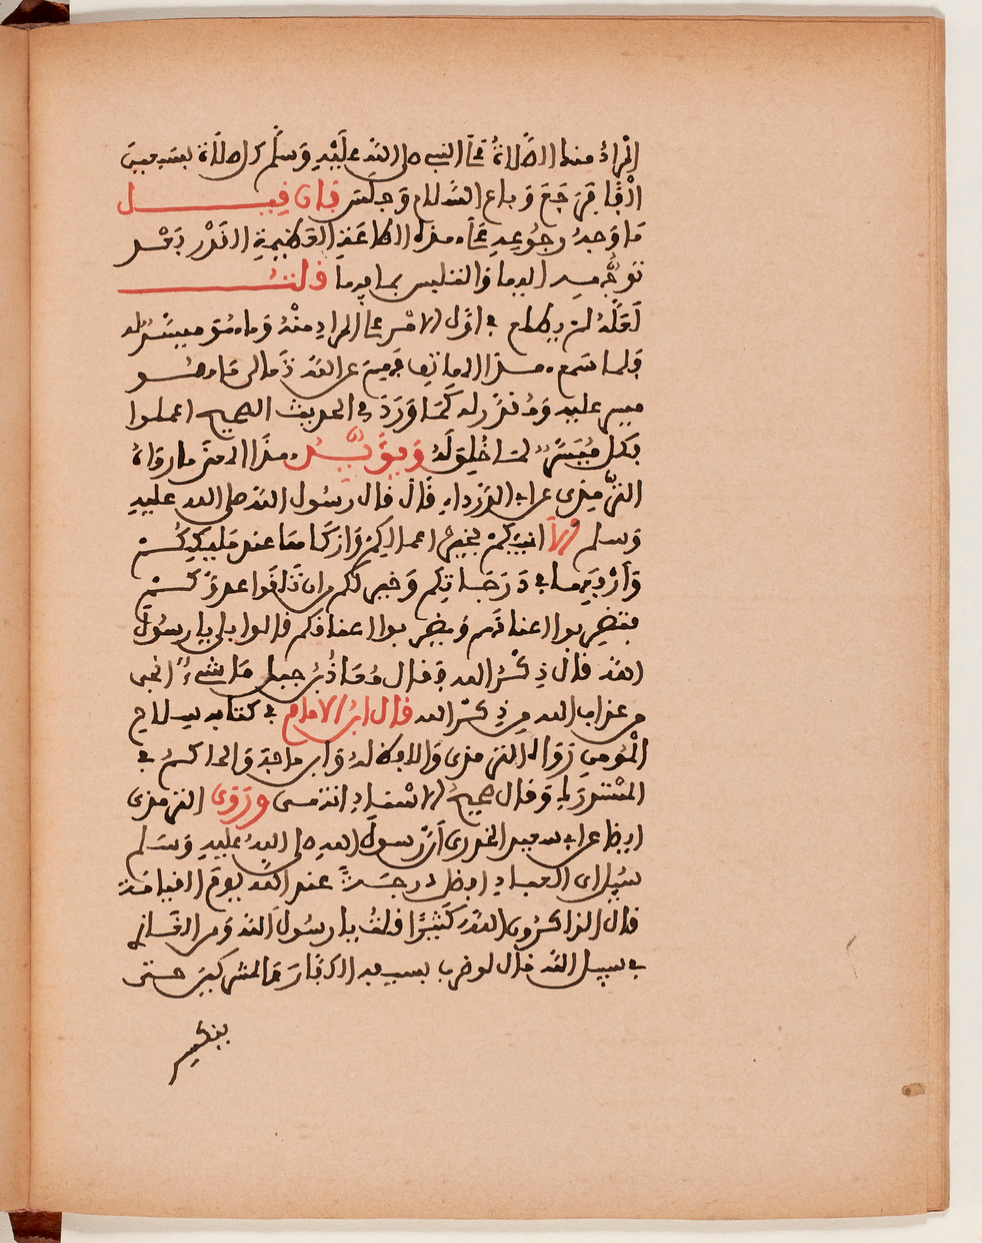 المراد منها الصلاة على النبي صلى الله عليه وسلم كل صلاة بسبعين
الفا فرجع وباع السلاح وجلس فإن قيل
ما وجه رجوعه عن هذه الطاعة العظيمة القدر بعد
توجهه إليها والتلبس بها قلت
لعله لم يطلع في أول الأمر على المراد منه وما هو ميسر له
فلما سمع هذا الهاتف فهم عن الله تعالى ما هو
ميسر عليه ومقدر له كما ورد في الحديث الصحيح اعملوا
فكل ميسر لما خلق له ويؤيد هذا المعنى ما رواه
الترمذي عن أبي الدرداء قال قال رسول الله صلى الله عليه
وسلم ألا أنبئكم بخير أعمالكم وأزكاها عند مليككم
وأرفعها في درجاتكم وخير لكم من أن تلقوا عدوكم
فتضربوا أعناقهم ويضربوا أعناقكم قالوا بلى يا رسول
الله قال ذكر الله فقال معاذ بن جبل ما شيء أنجى
من عذاب الله من ذكر الله قال ابن الإمام في كتابه سلاح
المؤمن رواه الترمذي واللفظ له وابن ماجة والحاكم في
المستدرك وقال صحيح الإسناد انتهى وروى الترمذي
أيضا عن أبي سعيد الخدري أن رسول الله صلى الله عليه وسلم
سئل أي العباد أفضل درجة عند الله يوم القيامة
قال الذاكرون الله كثيرا قلت يا رسول الله ومن الغازي
في سبيل الله قال لو ضرب بسيفه الكفار والمشركين حتى
ينكسر